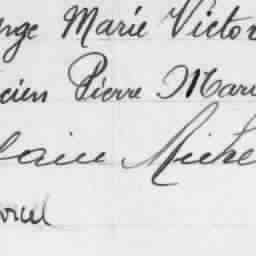 nge Marie Victor
cien Pierre Mari
lain Miche